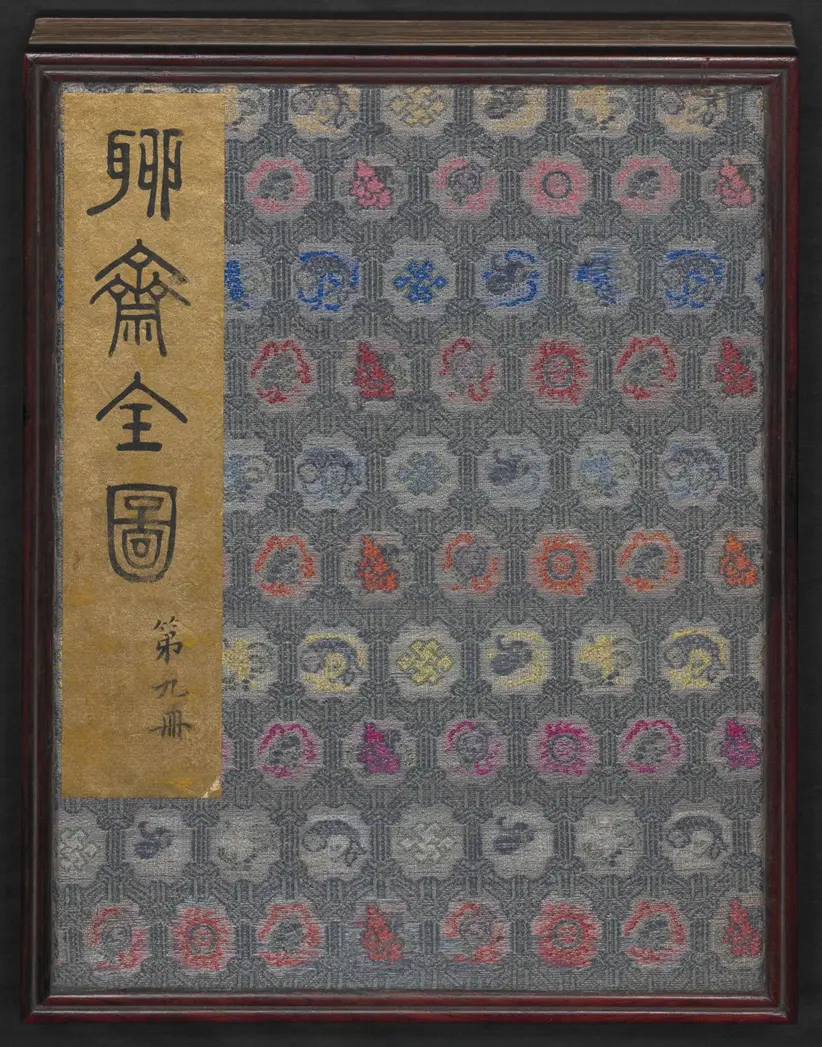 聊齋全圖
第九冊